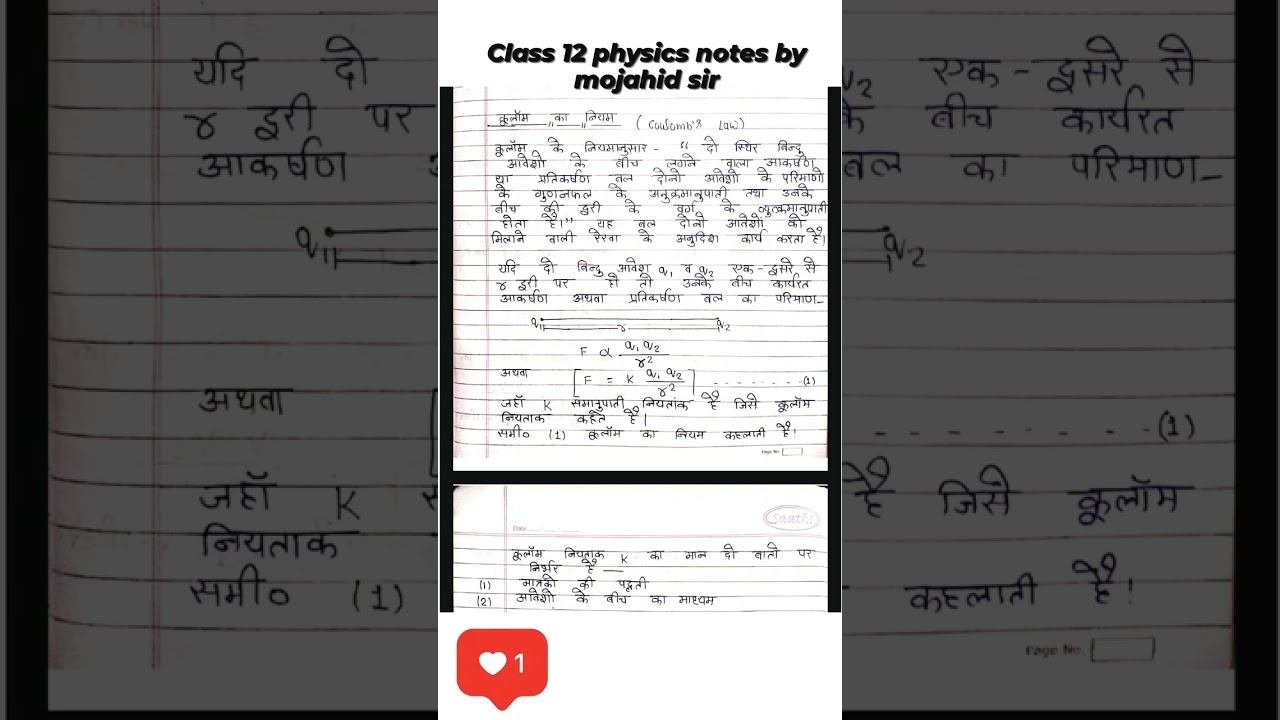 Class 12 physics notes by
mojahid sir
कूलॉम का नियम (Coulomb's Law)
कूलॉम के नियमानुसार - " दो स्थिर बिन्दु
आवेशो के बीच लगने वाला आकर्षण
या प्रतिकर्षण बल दोनो आवेशो के परिमाणो
के गुणनफल के अनुक्रमानुपाती तथा उनके
बीच की दुरी के वर्ग के व्युत्क्रमानुपाती
होता है।" यह बल दोनो आवेशो को
मिलाने वाली रेखा के अनुदिश कार्य करता है।
यदि दो बिन्दु आवेश q1 व q2 एक-दुसरे से
r दुरी पर हो तो उनके बीच कार्यरत
आकर्षण अथवा प्रतिकर्षण बल का परिमाण-
q1 r q2
F ∝ q1 q2 / r²
अथवा [F = K q1 q2 / r²] - - - - - - - -(1)
जहाँ K समानुपाती नियतांक है जिसे कूलॉम
नियताक कहते है|
समी० (1) कूलॉम का नियम कहलाती है!
Page No.
Saathi
Date
कूलॉम नियताक K का मान दो बातो पर
निर्भर है —
(1) मात्रको की पद्धती
(2) आवेशो के बीच का माध्यम
1
यदि दो
r दुरी पर
आकर्षण
q1
अथवा
जहाँ K
नियताक
समी० (1)
q2 एक-दुसरे से
के बीच कार्यरत
बल का परिमाण-
q2
- - - - - - - -(1)
है जिसे कूलॉम
कहलाती है!
Page No.